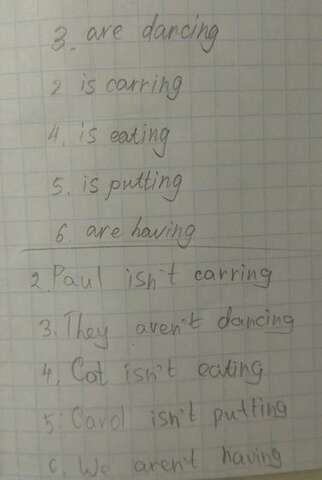 3. are dancing
2 is carring
4. is eating
5. is putting
6 are having
2. Paul isn't carring
3. They aren't dancing
4. Cat isn't eating
5. Carol isn't putting
6. We aren't having